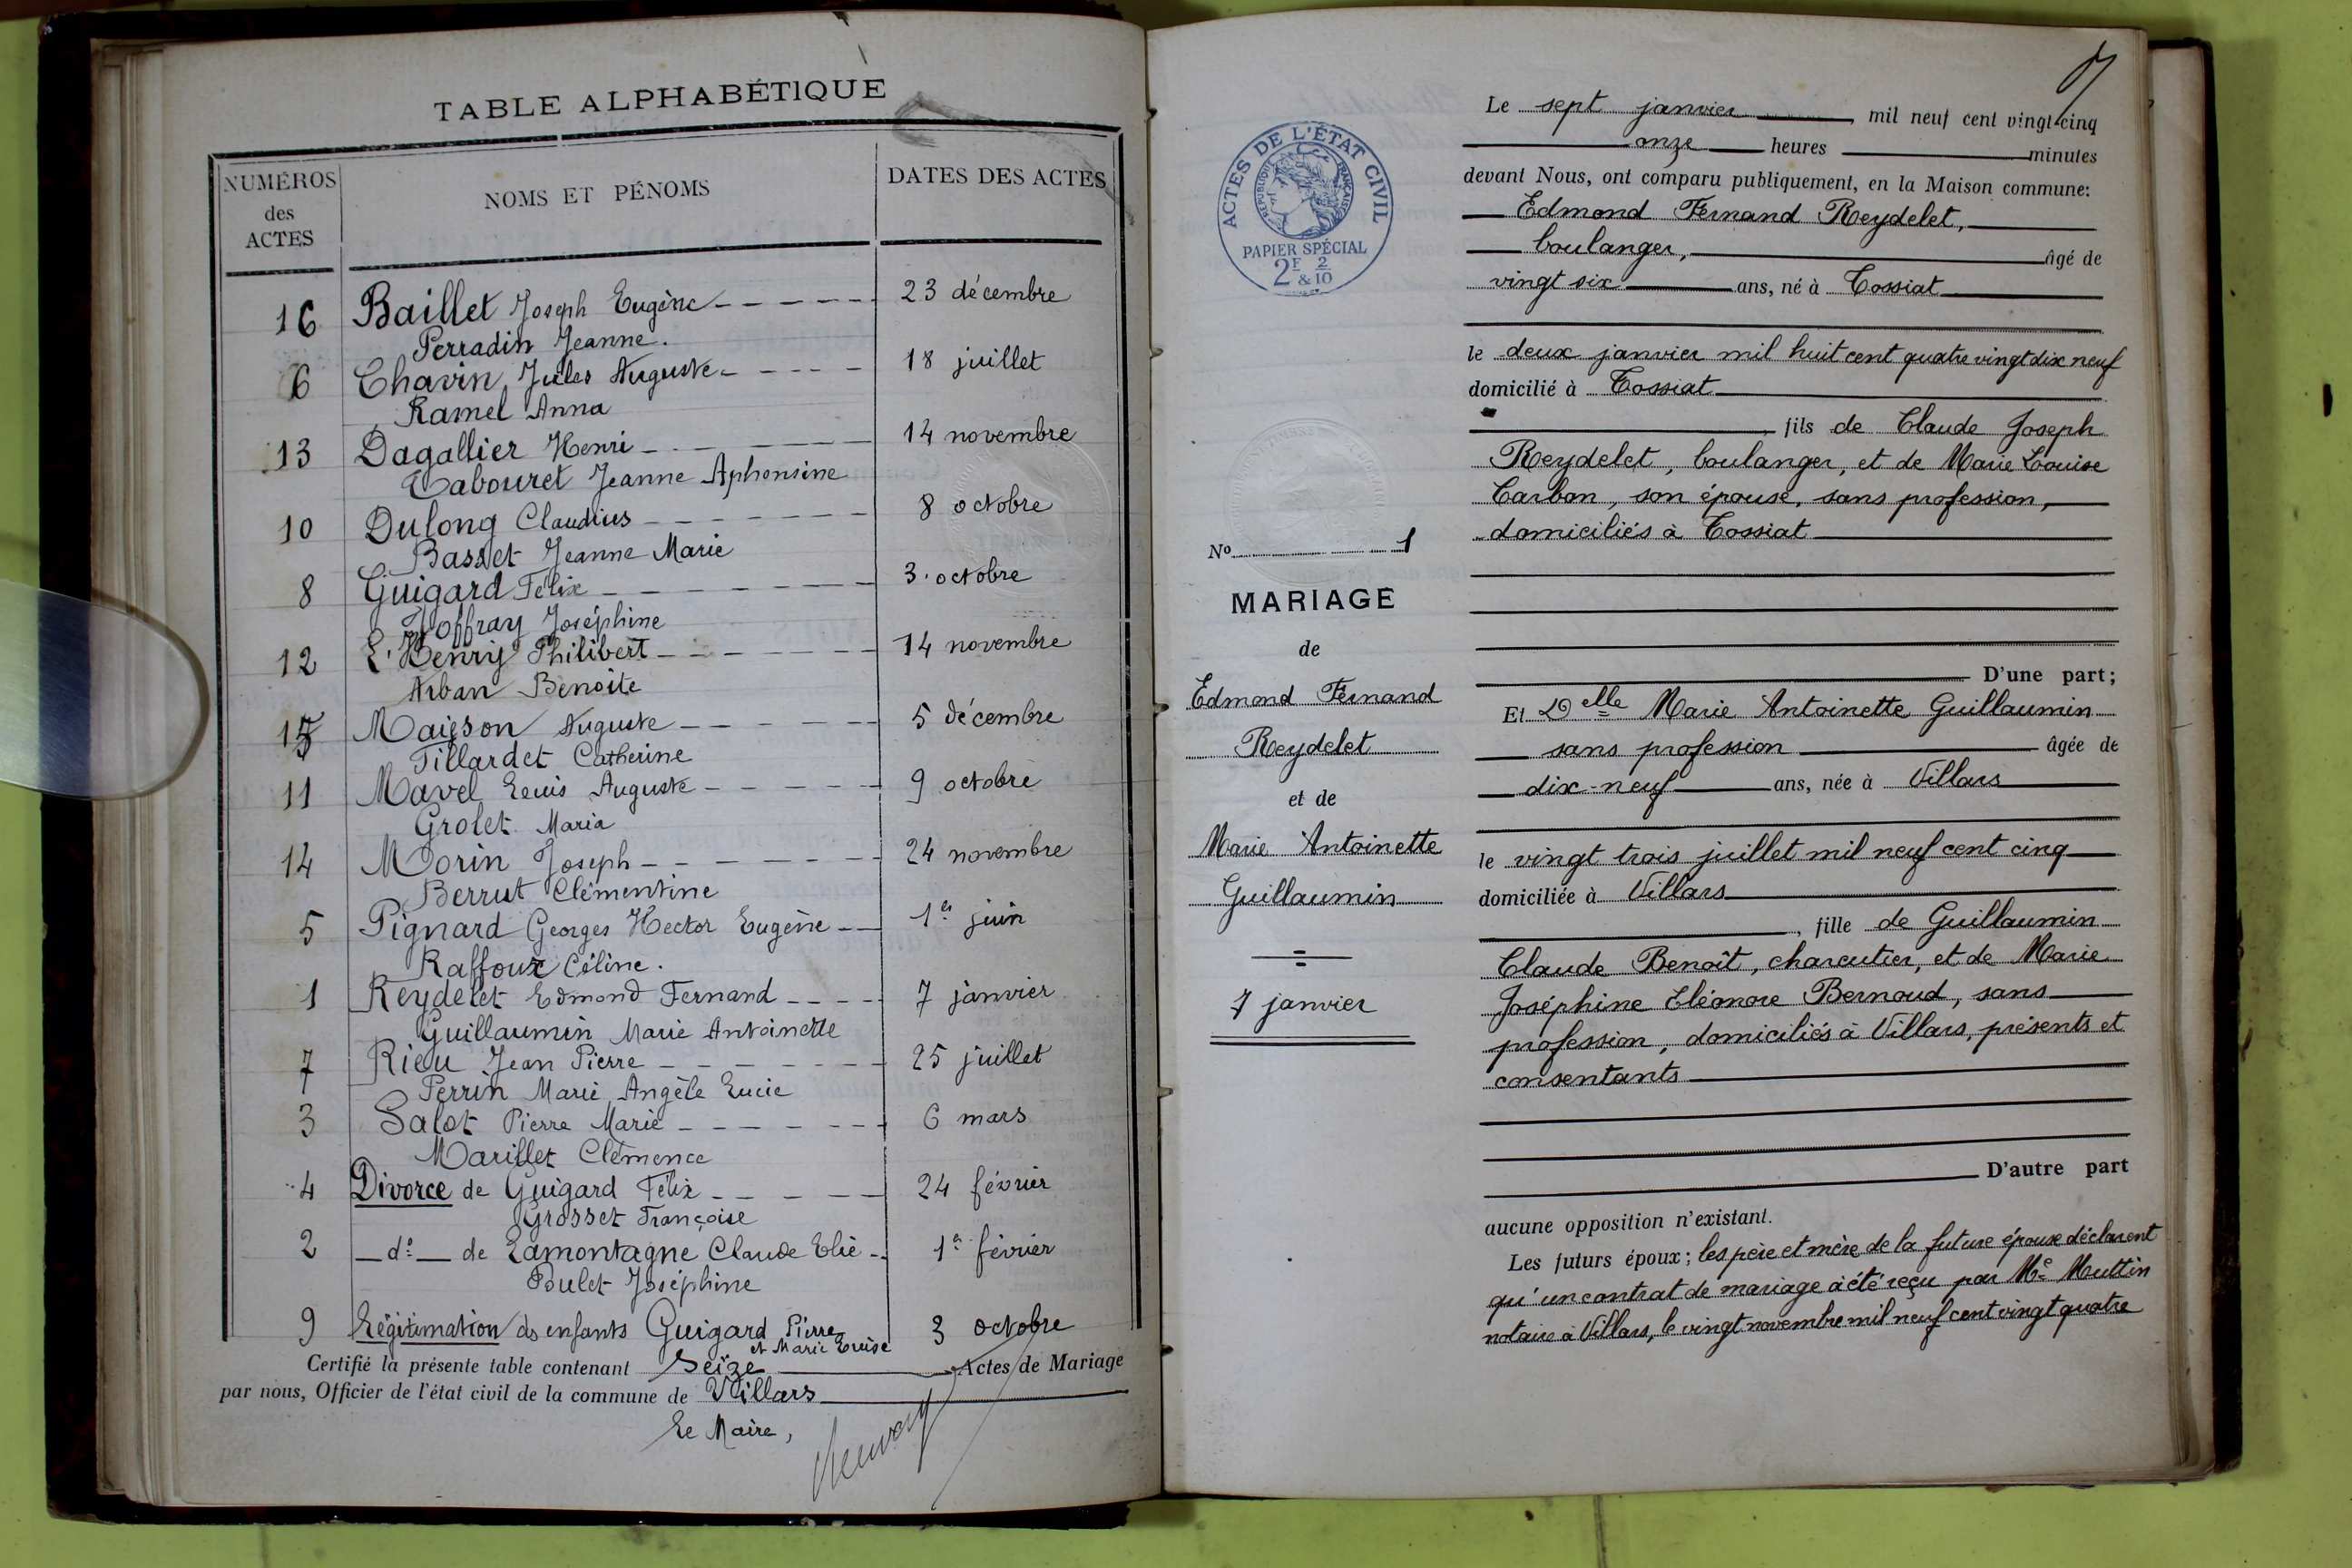 TABLE ALPHABÉTIQUE
NUMÉROS des ACTES
NOMS ET PÉNOMS
DATES DES ACTES
16 Baillet Joseph Eugène 23 décembre
Perradin Jeanne.
6 Chavin Jules Auguste 18 juillet
Ramel Anna
13 Dagallier Henri 14 novembre
Tabouret Jeanne Aphonsine
10 Dulong Claudius 8 octobre
Basset Jeanne Marie
8 Guigard Félix 3 octobre
Joffray Joséphine
12 L'Henry Philibert 14 novembre
Arban Benoite
15 Maigson Auguste 5 décembre
Tillardet Catherine
11 Mavel Louis Auguste 9 octobre
Grolet Maria
14 Morin Joseph 24 novembre
Berrut Clémentine
5 Pignard Georges Hector Eugène 1er juin
Raffoux Céline.
1 Reydelet Edmond Fernand 7 janvier
Guillaumin Marie Antoinette
7 Rieu Jean Pierre 25 juillet
Perrin Marie Angèle Lucie
3 Salot Pierre Marie 6 mars
Marillet Clémence
4 Divorce de Guigard Félix 24 février
Grosset Françoise
2 — do — de Lamontagne Claude Elie 1er février
Bulet Joséphine
9 Légitimation des enfants Guigard Pierre 3 octobre
et Marie Louise
Certifié la présente table contenant Seize Actes de Mariage
par nous, Officier de l'état civil de la commune de Villars
Le Maire,
ACTES DE L'ÉTAT CIVIL
RÉPUBLIQUE FRANÇAISE
PAPIER SPÉCIAL
2F & 2/10
No 1
MARIAGE
de
Edmond Fernand
Reydelet
et de
Marie Antoinette
Guillaumin
7 janvier
Le sept janvier, mil neuf cent vingt-cinq
onze heures minutes
devant Nous, ont comparu publiquement, en la Maison commune:
Edmond Fernand Reydelet,
boulanger, âgé de
vingt six ans, né à Tossiat
le deux janvier mil huit cent quatre vingt dix neuf
domicilié à Tossiat
, fils de Claude Joseph
Reydelet, boulanger, et de Marie Louise
Carban, son épouse, sans profession,
domiciliés à Tossiat
D'une part;
Et Delle Marie Antoinette Guillaumin
sans profession âgée de
dix-neuf ans, née à Villars
le vingt trois juillet mil neuf cent cinq
domiciliée à Villars
, fille de Guillaumin
Claude Benoît, charcutier, et de Marie
Joséphine Eléonore Bernoud, sans
profession, domiciliés à Villars, présents et
consentants
D'autre part
aucune opposition n'existant.
Les futurs époux; les père et mère de la future épouse déclarent
qu'un contrat de mariage a été reçu par Me Muttin
notaire à Villars, le vingt novembre mil neuf cent vingt quatre